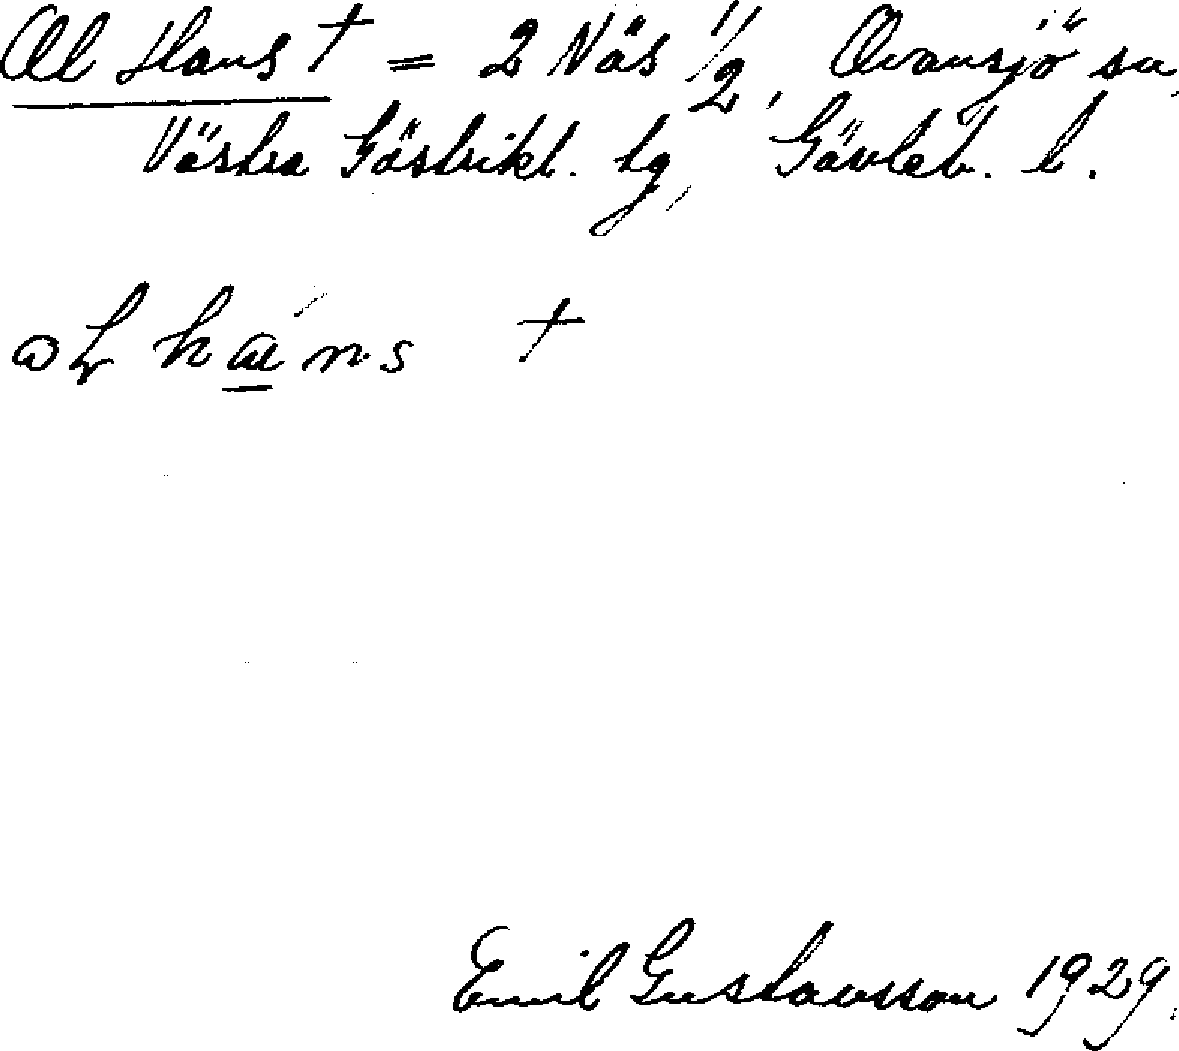 Ol Hans † = 2 Näs 1/2, Ovansjö sn,
Västra Gästrikl. tg, Gävleb. l.
†
Emil Gustavsson 1929.